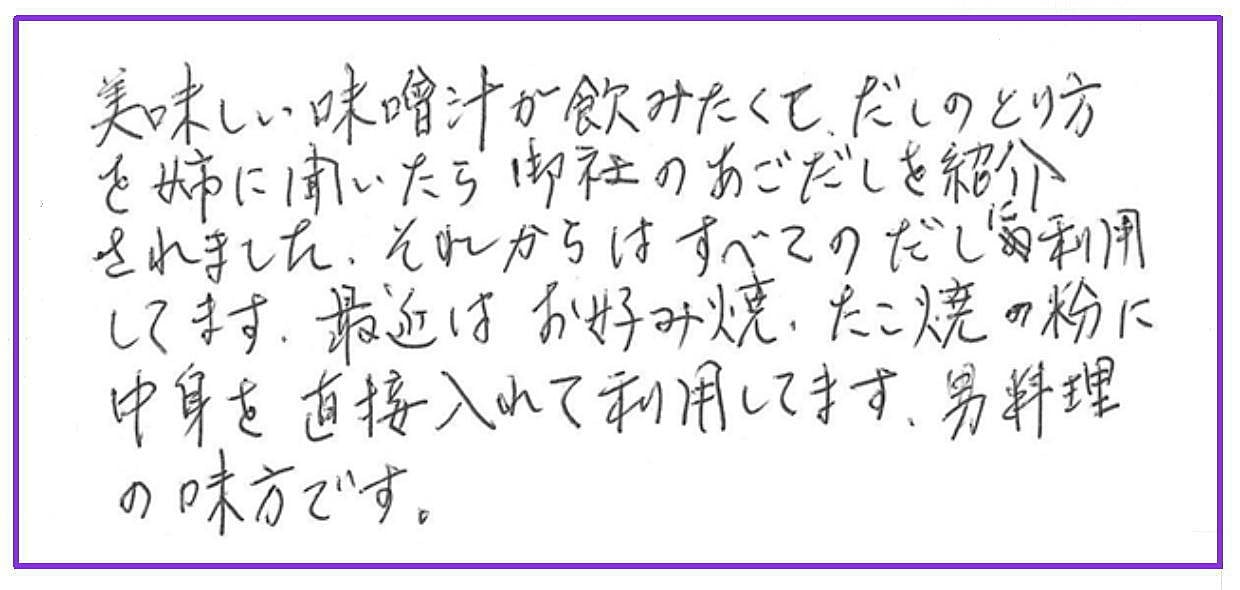 美味しい味噌汁が飲みたくて、だしのとり方
を姉に聞いたら御社のあごだしを紹介
されました、それからはすべてのだしに利用
してます、最近はお好み焼、たこ焼の粉に
中身を直接入れて利用してます、男料理
の味方です。